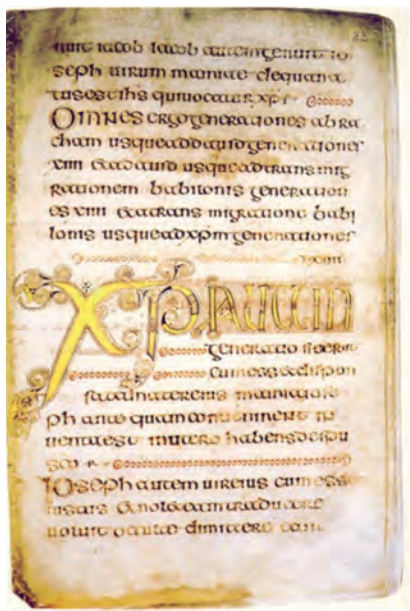 nuit iacob Iacob autem genuit io
seph uirum mariae dequana
tus est ihs qui uocatur xps
Omnes ergo generationes abra
cham usque ad dauid generationes
xiiii et a dauid usque ad transmig
rationem babilonis generation
es xiiii et a trans migratione babi
lonis usque ad xpm generationes
xiiii
XPI AUTEM
generatio sic erat
cum esset dispon
sata mater eius maria iose
ph ante quam conuenirent in
uenta est in utero habens de spu
sco
Ioseph autem uir eius cum esse
iustus et eam traducere
uoluit occulte dimittere eam